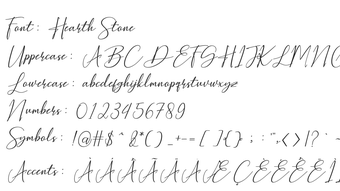 Font: Hearth Stone
Uppercase: A B C D E F G H I J K L M N O
Lowercase: abcdefghijklmnopqrstuvwxyz
Numbers: 0123456789
Symbols: !@#$^&*()_+-=[]{};:",<>|?`~
Accents: À Á Â Ã Ä Å Æ Ç È É Ê Ë Ì